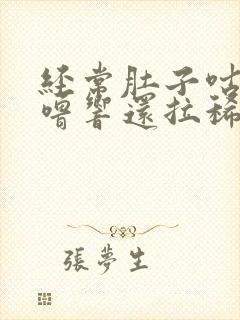 經常肚子咕
嘈響還拉稀
張夢生